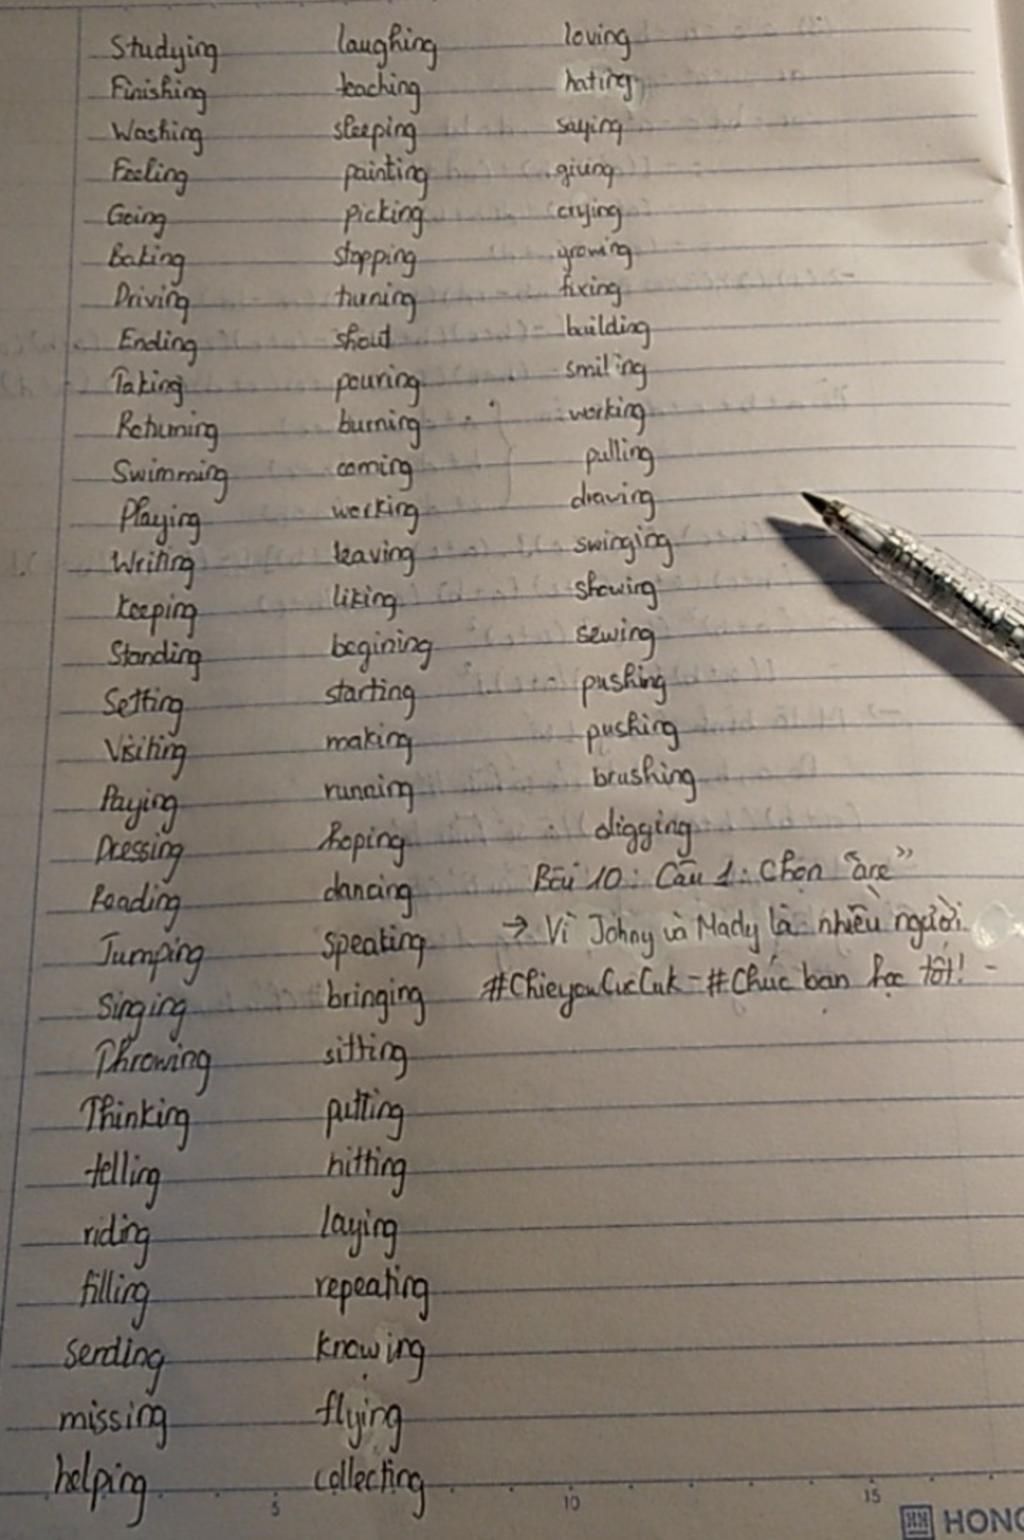 Studying laughing loving
Finishing teaching hating
Washing sleeping saying
Feeling painting giving
Going picking crying
Baking stopping growing
Driving turning fixing
Ending shout building
Taking pouring smiling
Returning burning working
Swimming coming pulling
Playing working drawing
Writing leaving swinging
Keeping liking showing
Standing begining sewing
Setting starting pushing
Visiting making pushing
Paying running brushing
Dressing hoping digging
Reading dancing Bài 10: Câu 1: Chọn "are"
Jumping speaking → Vì Johny và Mady là nhiều người
Singing bringing #ChieyouCucCuk - #Chúc bạn học tốt! -
Throwing sitting
Thinking putting
telling hitting
riding laying
filling repeating
sending knowing
missing flying
helping collecting
5 10 15
HONG